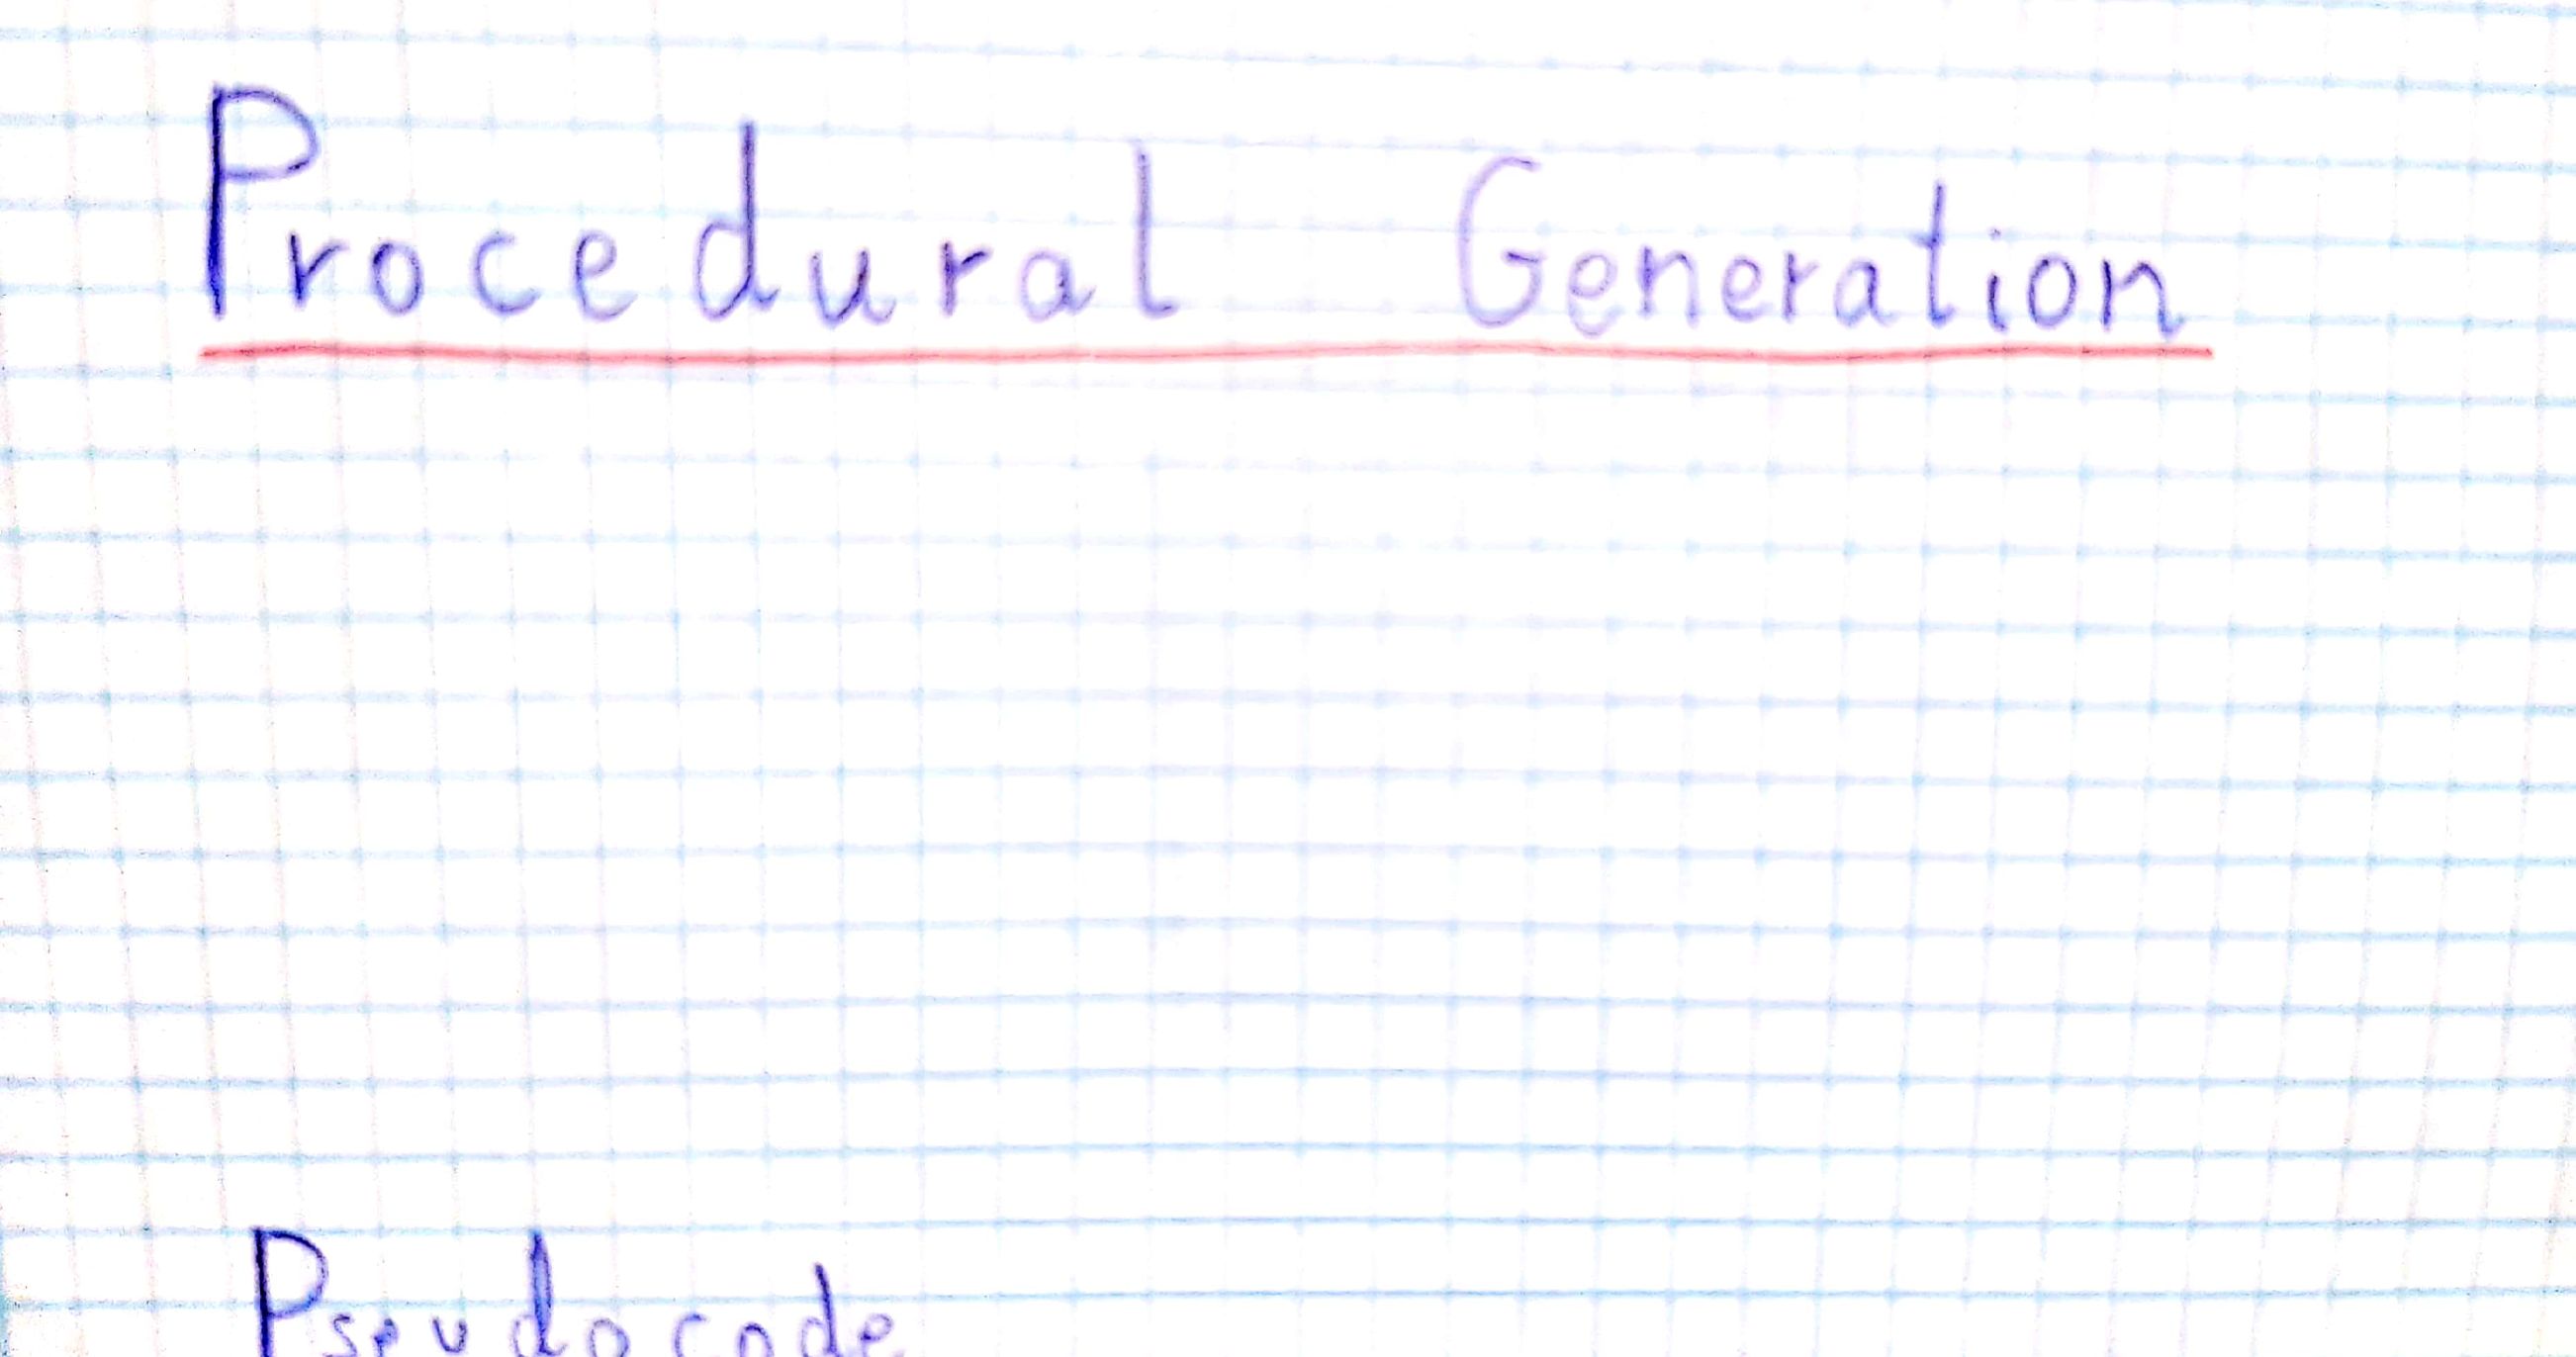 Procedural Generation
Pseudocode